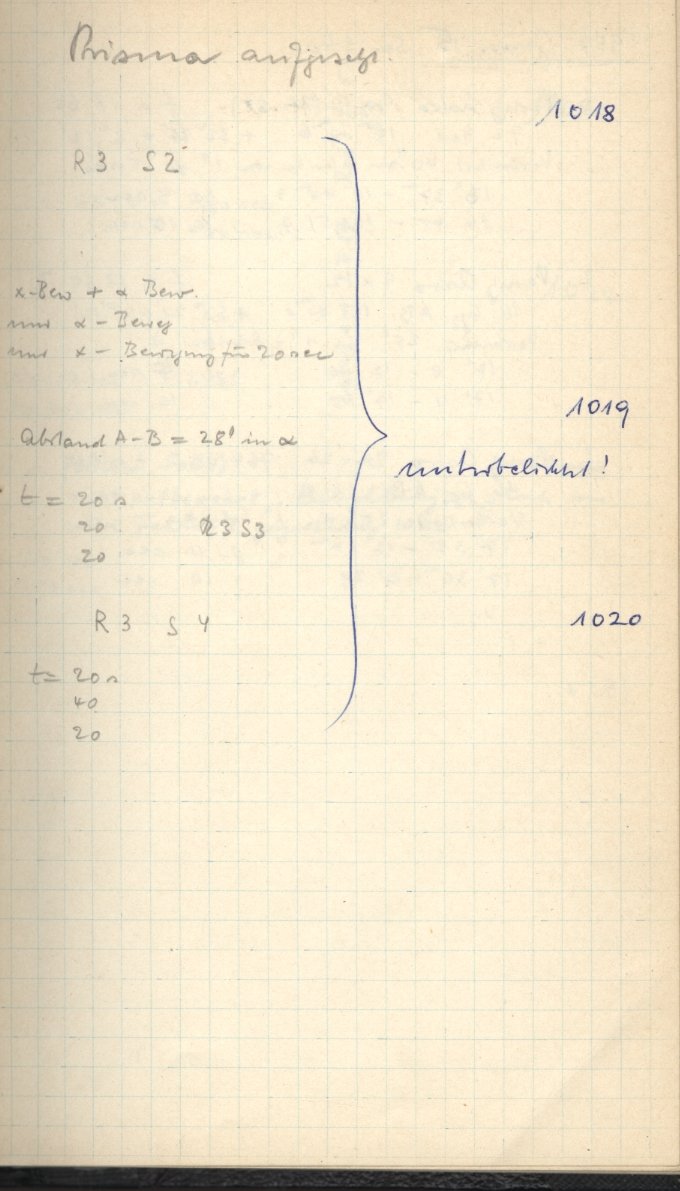 Prisma aufgesetzt.
1018
R3 S2
x-Bew + α Bew.
nur α - Beweg
nur x - Bewegung für 20 sec
1019
Abstand A-B = 28' in α
unterbelichtet!
t = 20 s
20 R3 S3
20
R3 S4
1020
t = 20 s
40
20